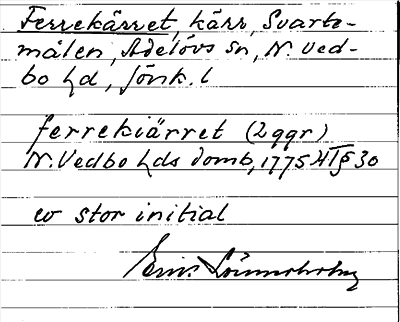 Ferrekärret, kärr, Svarte-
målen, Adelövs sn, N. Ved-
bo hd, Jönk. l
ferrekiärret (2 ggr)
N. Vedbo hds domb, 1775 § 30
ev stor initial